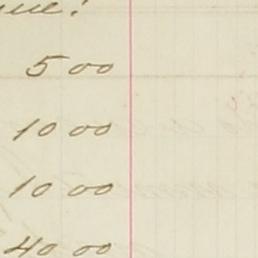 5 00
10 00
10 00
40 00